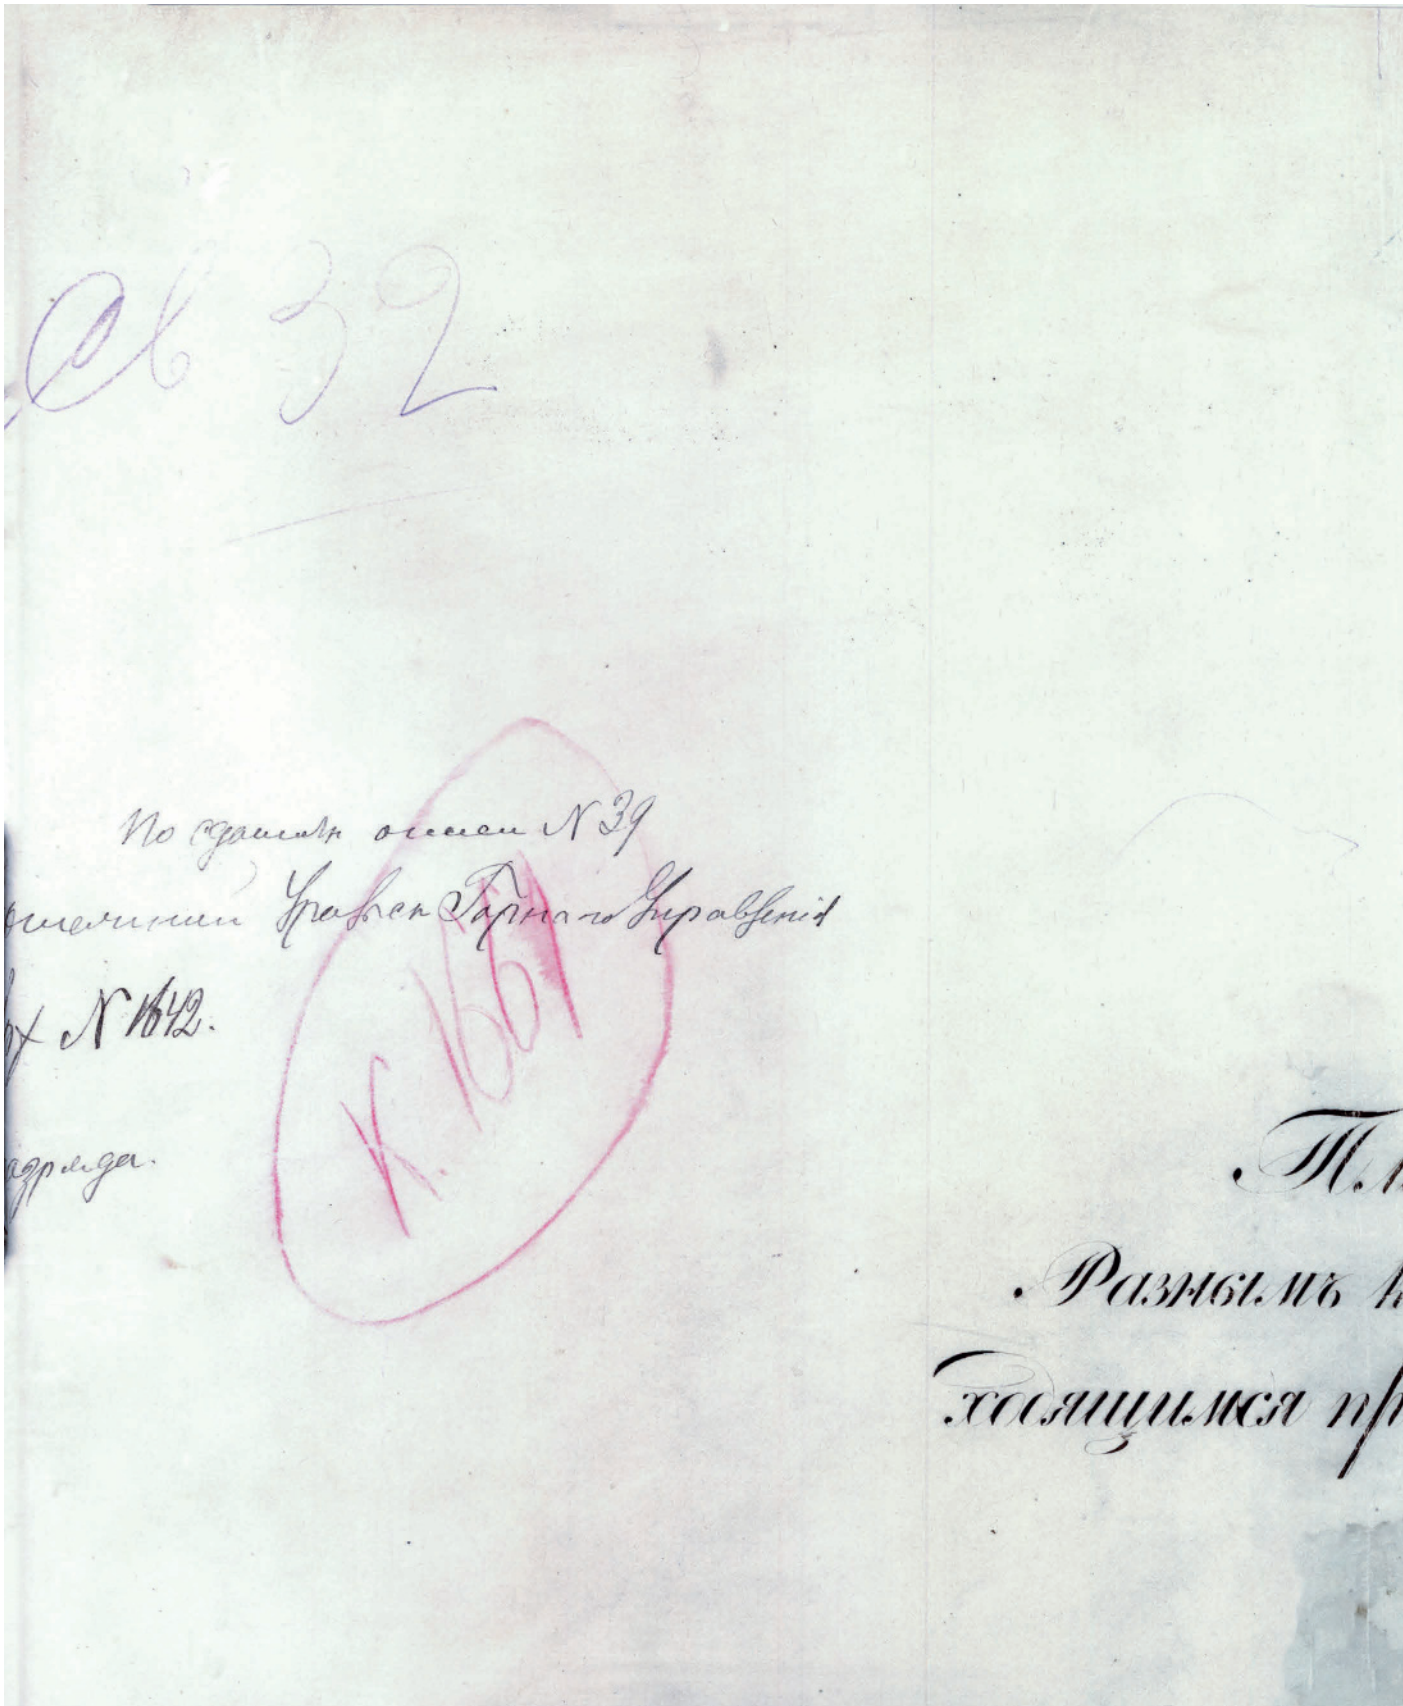 Св 32
По сдаточн описи N 39
Уральск Горнаго Управленія
N 1642.
К. 1661
азряда.
Пл
Разнымъ к
ходящимся пр